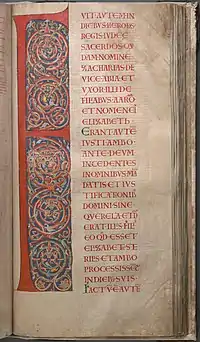 VIT AUTEM IN
DIEBUS HERODIS
REGIS IUDEE
SACERDOS QUI
DAM NOMINE
ZACHARIAS DE
VICE ABIA ET
UXOR ILLI DE
FILIABUS AARO
ET NOMEN EI
ELISABETH
ERANT AUTE
IUSTI AMBO
ANTE DEUM
INCEDENTES
IN OMNIBUS MA
DATIS ET IUS
TIFICATIONIB
DOMINI SINE
QUERELA ET N
ERAT ILLIS FILI
EO QD ESSET
ELISABET STE
RILIS ET AMBO
PROCESSISSET
IN DIEBUS SUIS
FACTU E AUTE